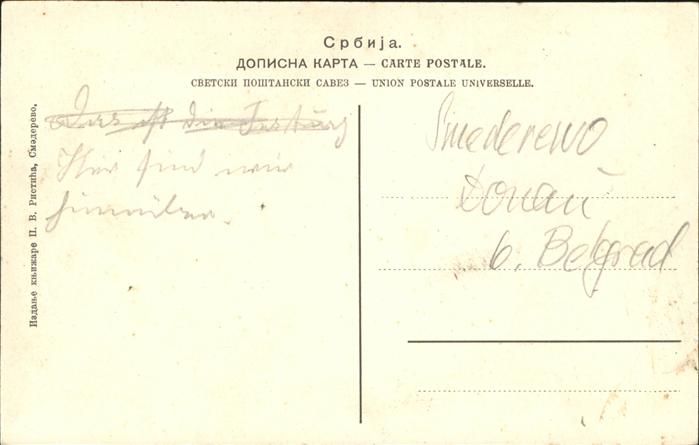 Србија.
ДОПИСНА КАРТА — CARTE POSTALE.
СВЕТСКИ ПОШТАНСКИ САВЕЗ — UNION POSTALE UNIVERSELLE.
Das ist die Festung
Hier sind wir
Smederewo
Donau
b. Belgrad
Издање књижаре П. В. Ристића, Смедерево.